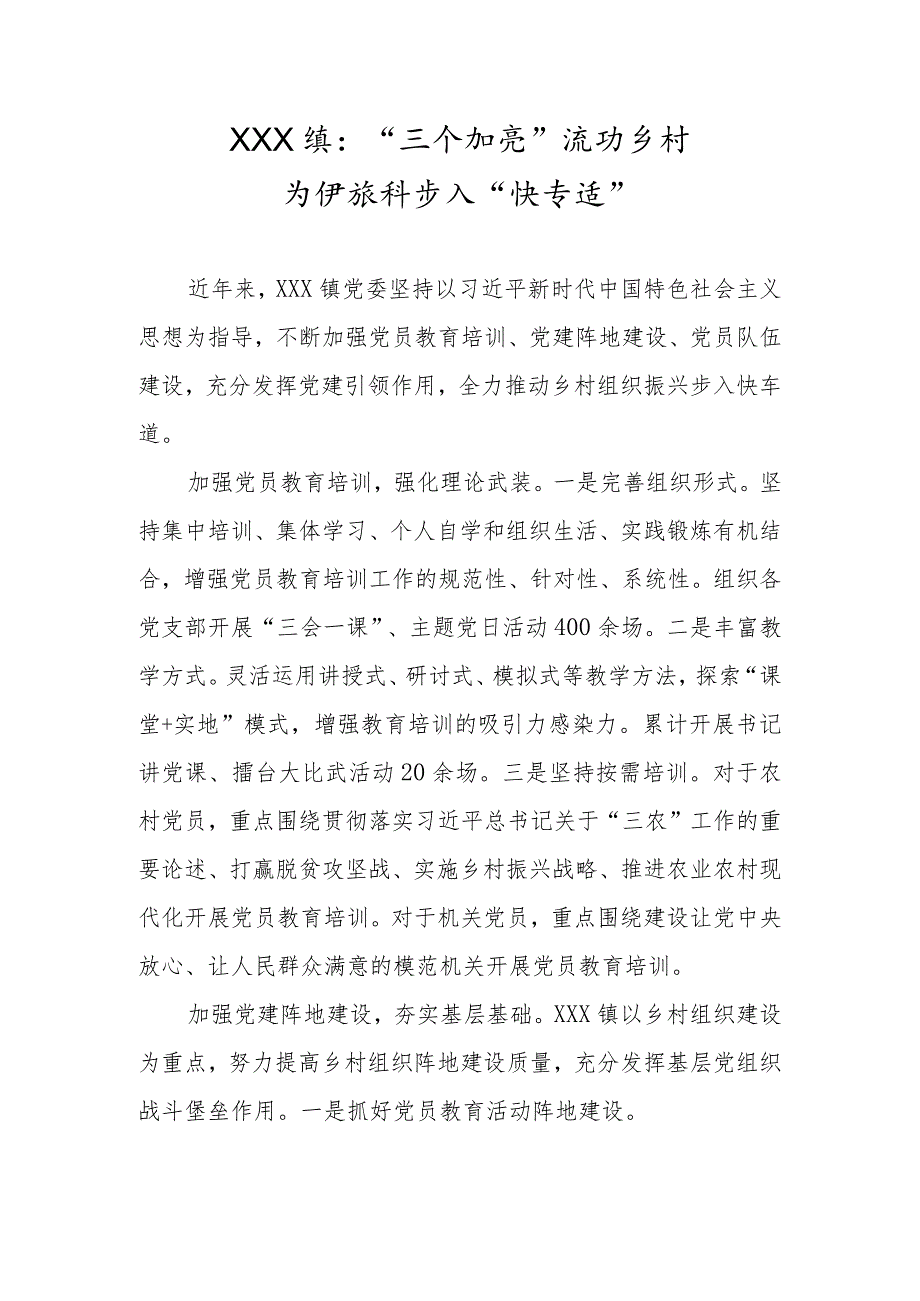 XXX 缜：“三个加亮”流功乡村
为伊旅科步入“快专适”
近年来，XXX 镇党委坚持以习近平新时代中国特色社会主义
思想为指导，不断加强党员教育培训、党建阵地建设、党员队伍
建设，充分发挥党建引领作用，全力推动乡村组织振兴步入快车
道。
加强党员教育培训，强化理论武装。一是完善组织形式。坚
持集中培训、集体学习、个人自学和组织生活、实践锻炼有机结
合，增强党员教育培训工作的规范性、针对性、系统性。组织各
党支部开展“三会一课”、主题党日活动 400 余场。二是丰富教
学方式。灵活运用讲授式、研讨式、模拟式等教学方法，探索“课
堂+实地”模式，增强教育培训的吸引力感染力。累计开展书记
讲党课、擂台大比武活动 20 余场。三是坚持按需培训。对于农
村党员，重点围绕贯彻落实习近平总书记关于“三农”工作的重
要论述、打赢脱贫攻坚战、实施乡村振兴战略、推进农业农村现
代化开展党员教育培训。对于机关党员，重点围绕建设让党中央
放心、让人民群众满意的模范机关开展党员教育培训。
加强党建阵地建设，夯实基层基础。XXX 镇以乡村组织建设
为重点，努力提高乡村组织阵地建设质量，充分发挥基层党组织
战斗堡垒作用。一是抓好党员教育活动阵地建设。